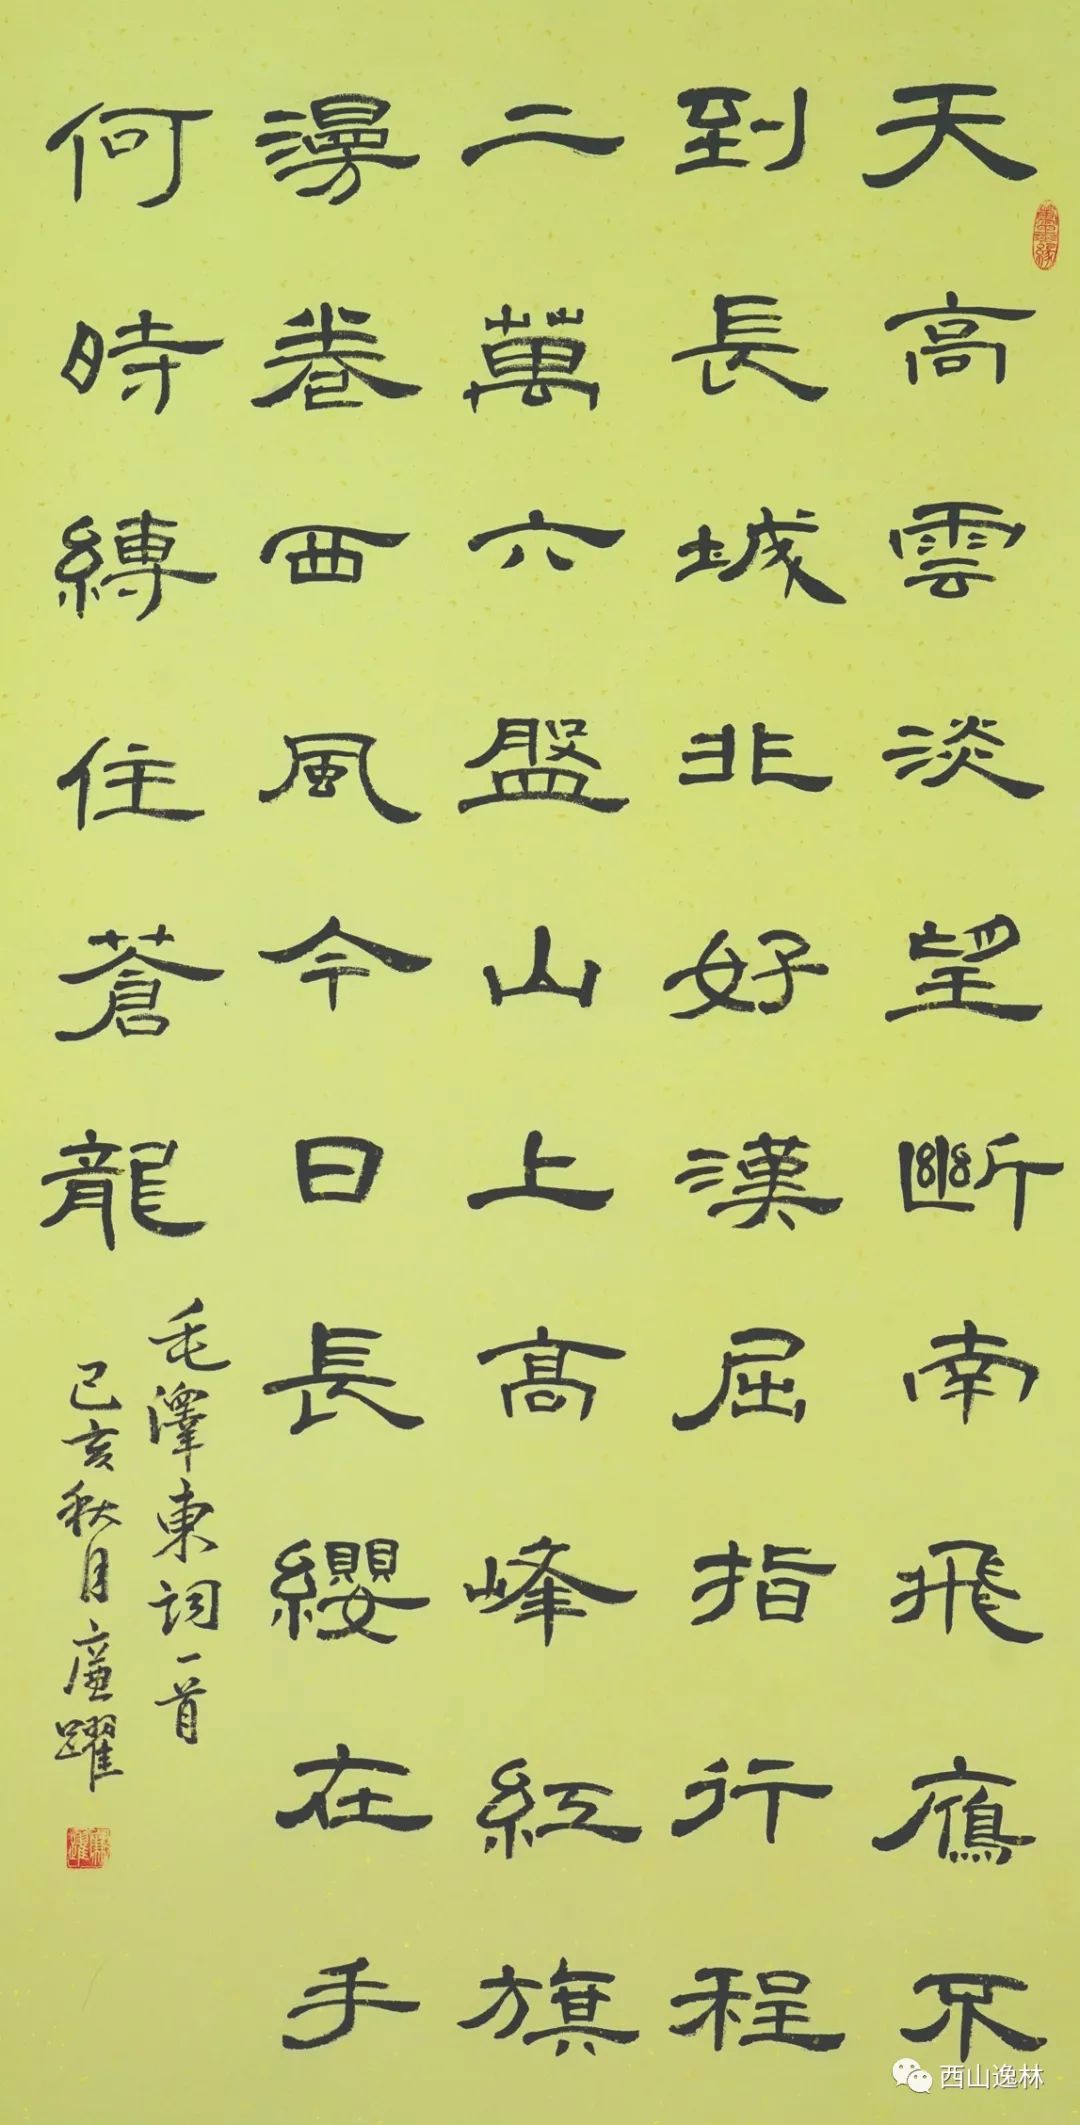 天高雲淡望斷南飛鴈不
到長城非好漢屈指行程
二萬六盤山上高峰紅旗
漫卷西風今日長纓在手
何時縛住蒼龍
毛澤東詞一首
己亥秋月廉躍
西山逸林